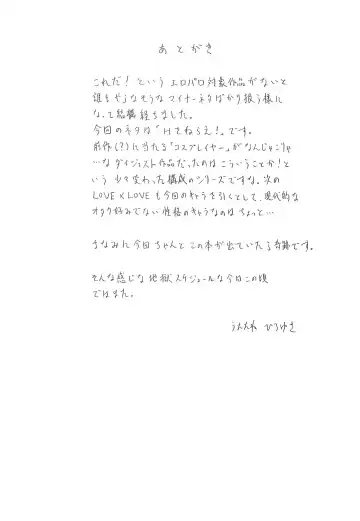 あとがき
これだ! という エロパロ対象作品がないと
誰もやらなそうな マイナーネタばかり扱う様に
なって結構 経ちました。
今回のネタは「Hでねらえ!」です。
前作(?)に当たる「コスプレイヤー」がなんじゃこりゃ
…なダイジェスト作品だったのは こういうことか! と
いう 少々変わった構成のシリーズですな。次の
LOVE×LOVEも今回のキャラを引くとして、現代的な
オタク好みでない性格のキャラなのは ちょっと…
ちなみに今回 ちゃんと この本が出ていたら奇跡です。
そんな感じな 地獄スケジュールな今日この頃
ではまた。
ひろゆき